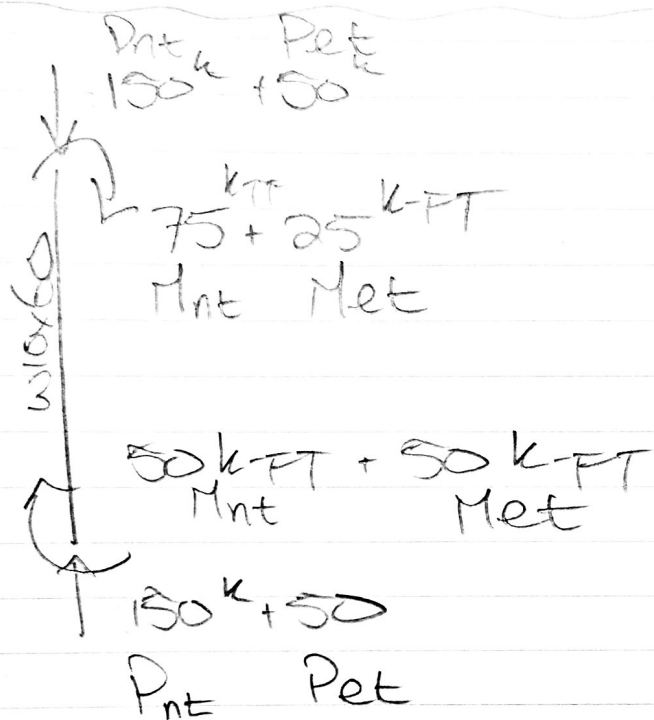 Pnt Pet
150k + 50k
75 + 25 k-FT
Mnt Met
W10x60
50 k-FT + 50 k-FT
Mnt Met
150k + 50
Pnt Pet